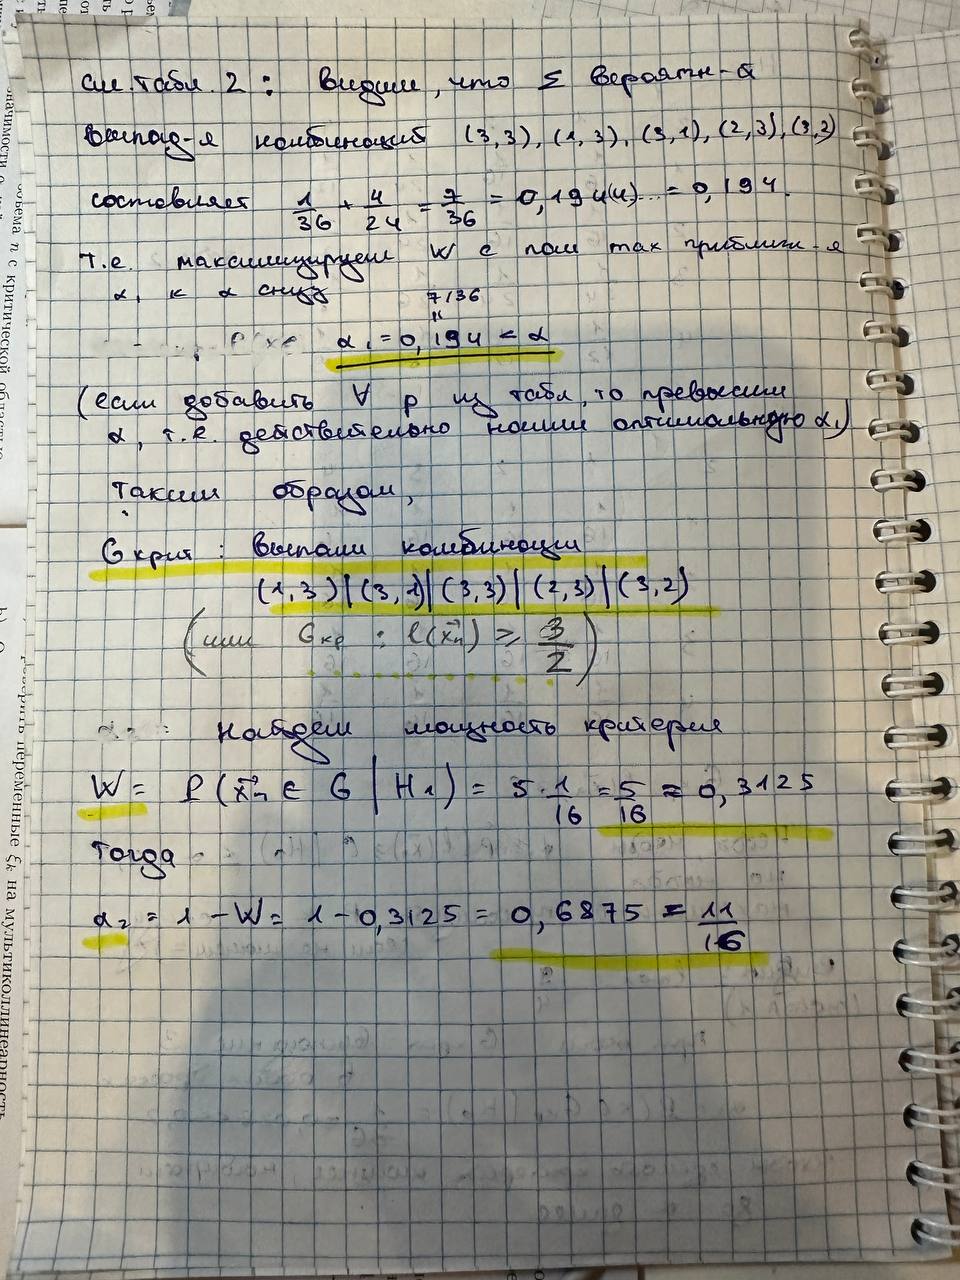 см. табл. 2 : Видим, что Σ вероятн-й
выпад-я комбинаций (3,3), (1,3), (3,1), (2,3), (3,2)
составляет 1/36 + 4/24 = 7/36 = 0,194(4)... = 0,194.
т.е. максимизируем W с пом max приближ-я
α₁ к α снизу
7/36
"
α₁ = 0,194 < α
(если добавить ∀ p из табл, то превысим
α, т.е. действительно нашли оптимальную α₁)
Таким образом,
G крит : выпали комбинации
(1,3) | (3,1) | (3,3) | (2,3) | (3,2)
(или Gкр : l(x⃗n) ≥ 3/2)
Найдем мощность критерия
W = P(x⃗n ∈ G | H₁) = 5 · 1/16 = 5/16 = 0,3125
Тогда
α₂ = 1 - W = 1 - 0,3125 = 0,6875 = 11/16
объема n с критической област
переменные ξk на мультиколлинеарность